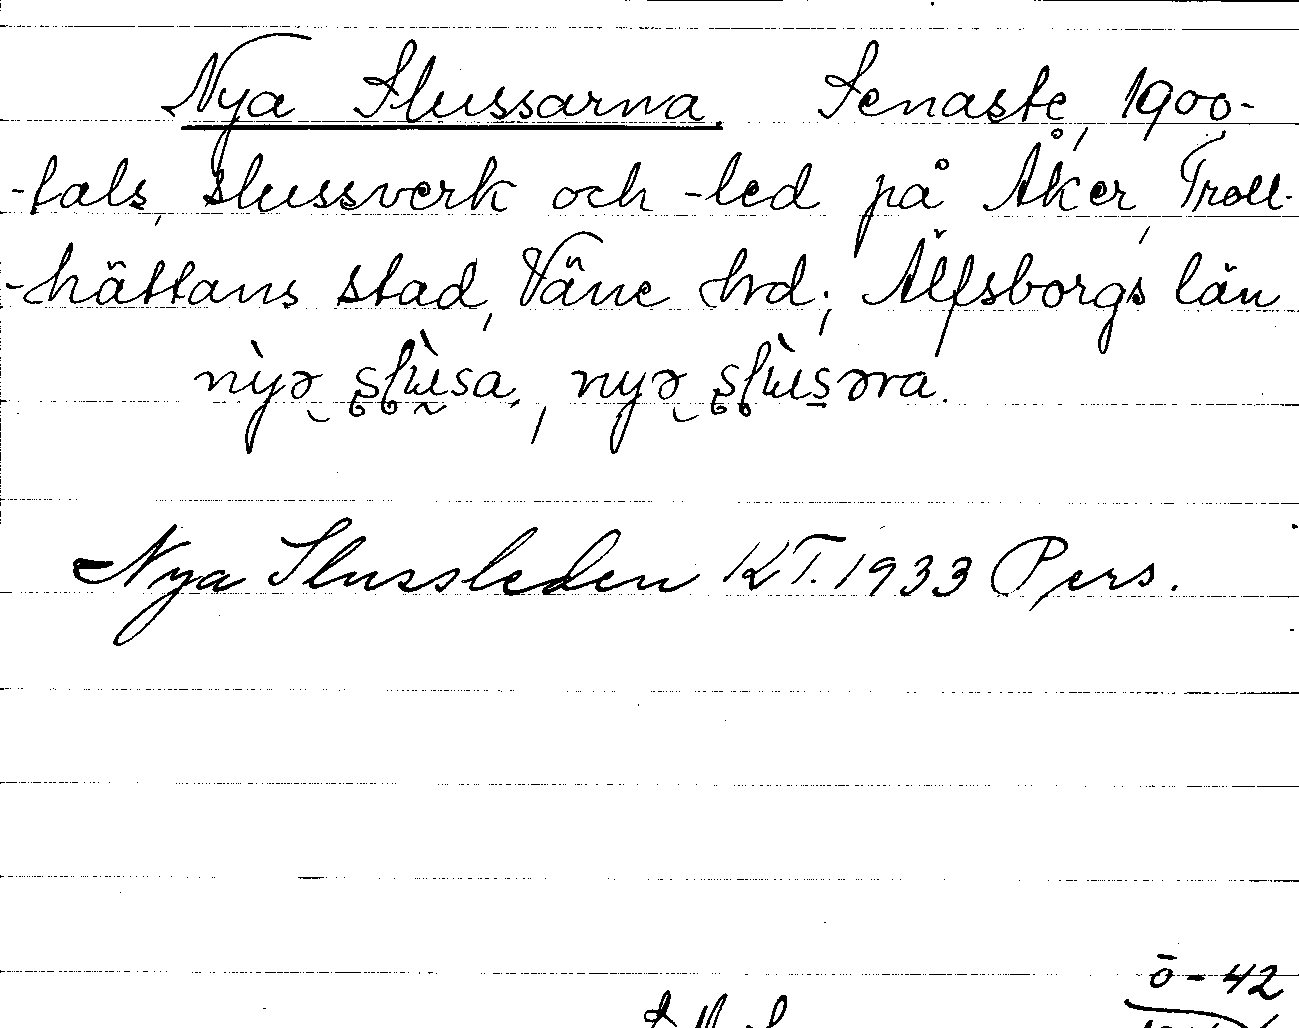 Nya Slussarna. Senaste, 1900-
-tals, slussverk och -led på Åker, Troll-
-hättans stad, Väne hrd; Älfsborgs län
nỳə ʂɭùsa., nyə ʂɭùsəra.
Nya Slussleden KT. 1933 Pers.
ō-42